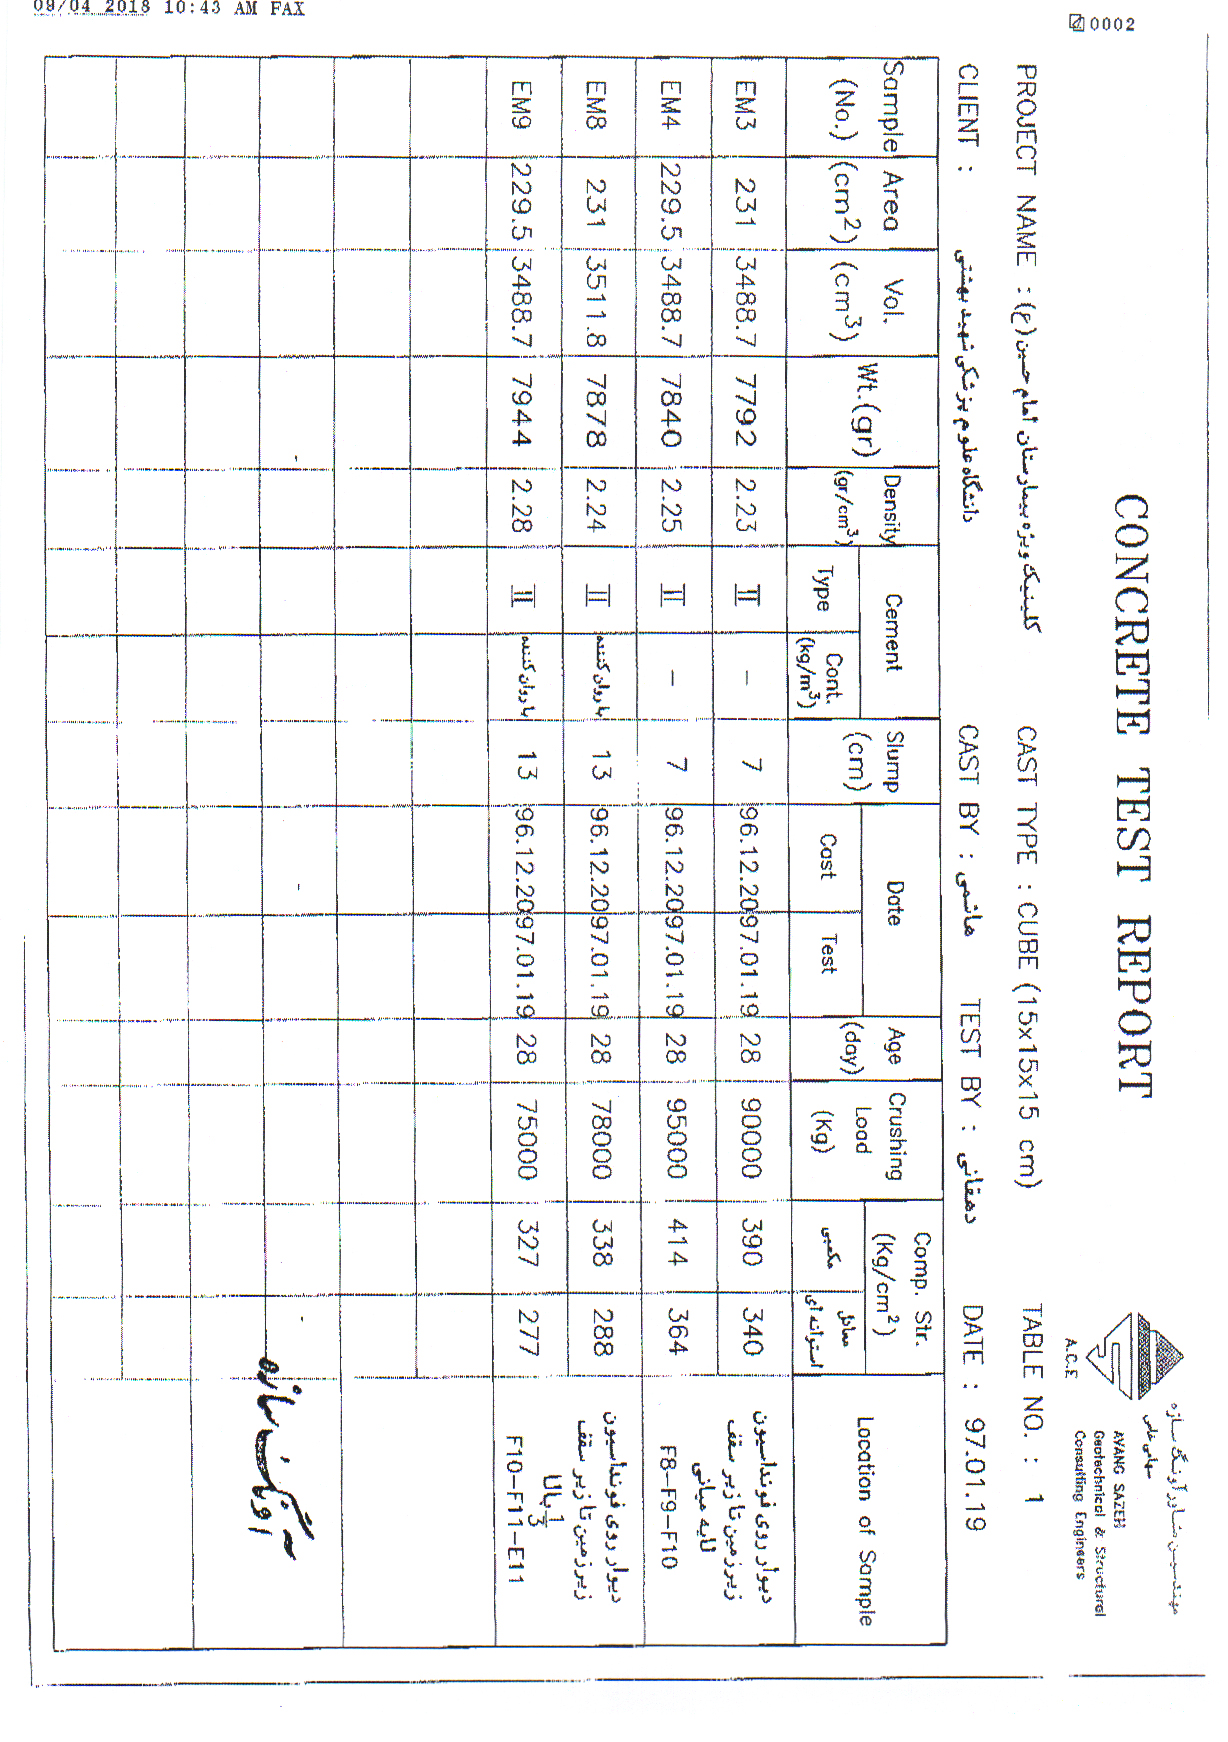 09/04 2018 10:43 AM FAX
0002
CONCRETE TEST REPORT
مهندسین مشاور آونگ سازه
سهامی خاص
AVANG SAZEH
Geotechnical & Structural
Consulting Engineers
A.C.E
PROJECT NAME : کلینیک ویژه بیمارستان امام حسین (ع) CAST TYPE : CUBE (15x15x15 cm) TABLE NO. : 1
CLIENT : دانشگاه علوم پزشکی شهید بهشتی CAST BY : هاشمی TEST BY : دهقانی DATE : 97.01.19
Sample (No.) Area (cm²) Vol. (cm³) Wt.(gr) Density (gr/cm³) Cement Type Cont. (kg/m³) Slump (cm) Date Cast Test Age (day) Crushing Load (Kg) Comp. Str. (Kg/cm²) مکعبی معادل استوانه ای Location of Sample
EM3 231 3488.7 7792 2.23 II - 7 96.12.20 97.01.19 28 90000 390 340
EM4 229.5 3488.7 7840 2.25 II - 7 96.12.20 97.01.19 28 95000 414 364
دیوار روی فونداسیون
زیرزمین تا زیر سقف
لایه میانی
F8-F9-F10
EM8 231 3511.8 7878 2.24 II با روان کننده 13 96.12.20 97.01.19 28 78000 338 288
EM9 229.5 3488.7 7944 2.28 II با روان کننده 13 96.12.20 97.01.19 28 75000 327 277
دیوار روی فونداسیون
زیرزمین تا زیر سقف
1/3 بالا
F10-F11-E11
آونگ سازه